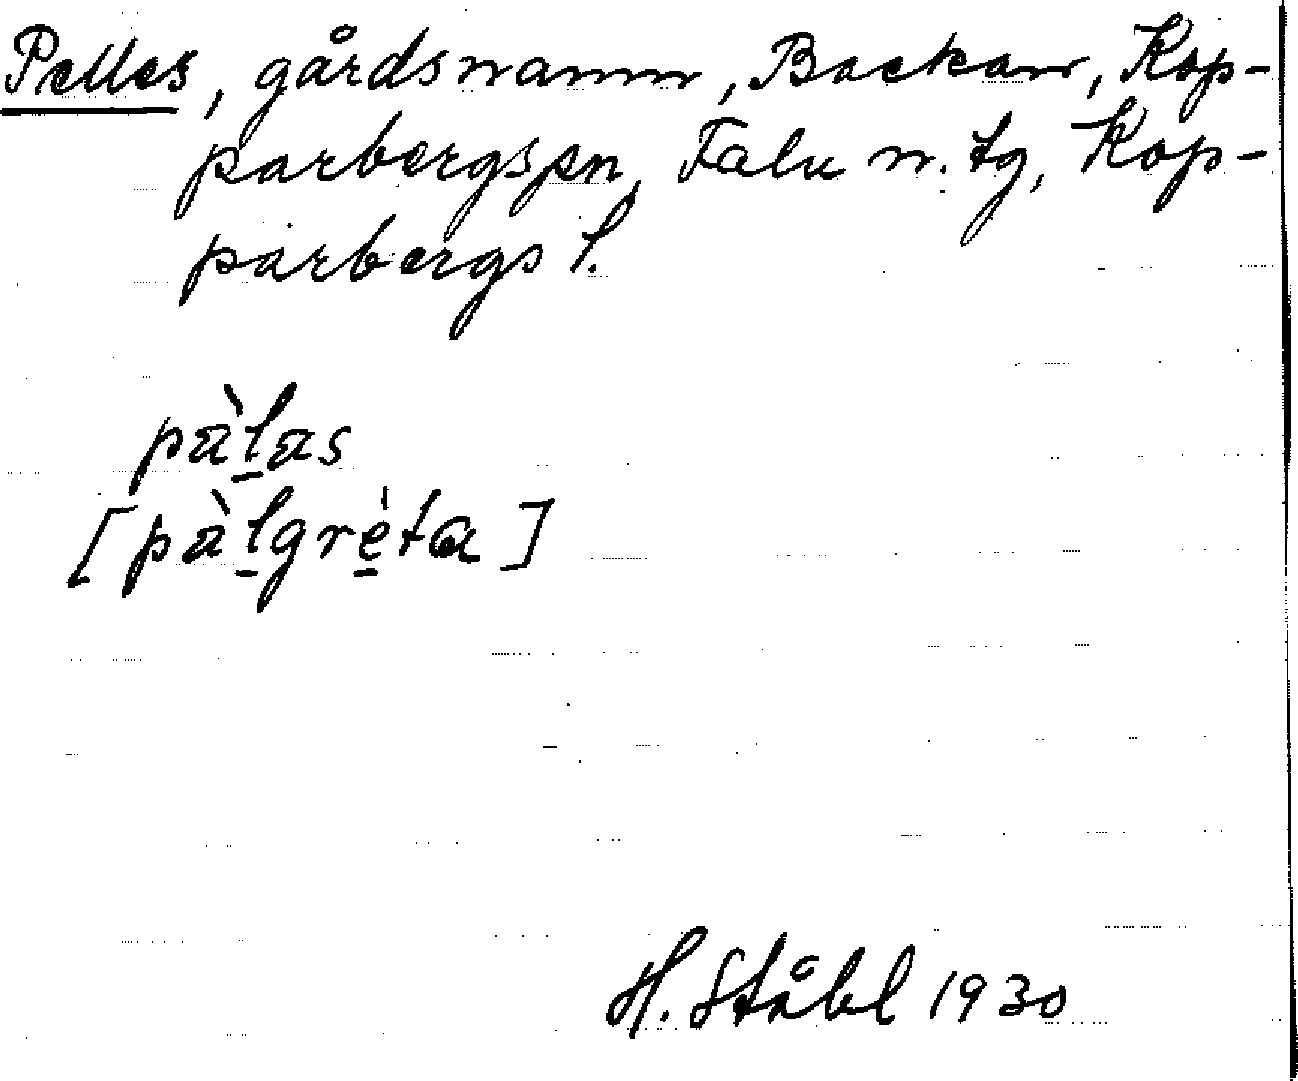 Pelles, gårdsnamn, Backan, Kop-
parbergs sn, Falu n. tg, Kop-
parbergs l.
pàl̠as
[pàl̠gre̠̍ta]
H. Ståhl 1930